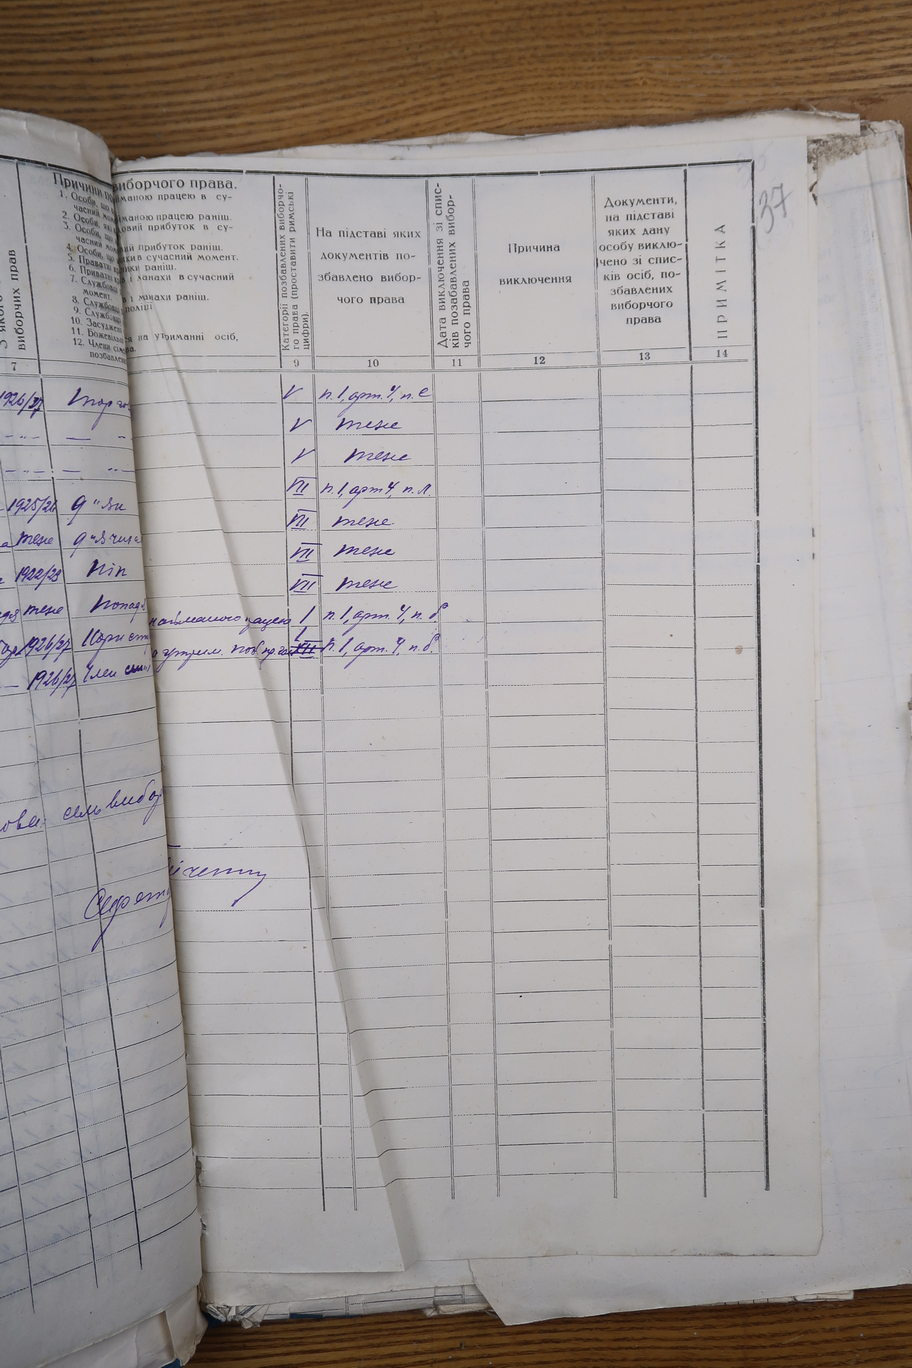 37
Причини
виборчого права.
1. Особи, що
маною працею в су-
часний
2. Особи,
маною працею раніш.
3. Особи, що
довий прибуток в су-
часний
4. Особи, що
ий прибуток раніш.
5. Приватні
ки в сучасний момент.
6. Приватні
ики раніш.
7. Служб
і манахи в сучасний
момент.
8. Службовці
і манахи раніш.
9. Службовці
поліції
10. Засуджені
11. Божевільні
12. Члени сімей
на утриманні осіб,
позбавлених
З якого
виборчих прав
Категорії позбавлених виборчо-
го права (проставити римські
цифри).
На підставі яких
документів по-
збавлено вибор-
чого права
Дата виключення зі спис-
ків позабавлених вибор-
чого права
Причина
виключення
Документи,
на підставі
яких дану
особу виклю-
чено зі спис-
ків осіб, по-
збавлених
виборчого
права
ПРИМІТКА
7 9 10 11 12 13 14
1926/27 V п. 1, арт. 4, п. е
V теже
V теже
1925/26 д"як VII п. 1, арт 4, п. л
теже VII теже
1922/23 піп VII теже
теже попадя VII теже
1926/27 найманою працею I п. 1, арт. 4, п. б.
1926/27 Член I VII п. 1, арт. 4, п. б.
сель вибор
Секрет